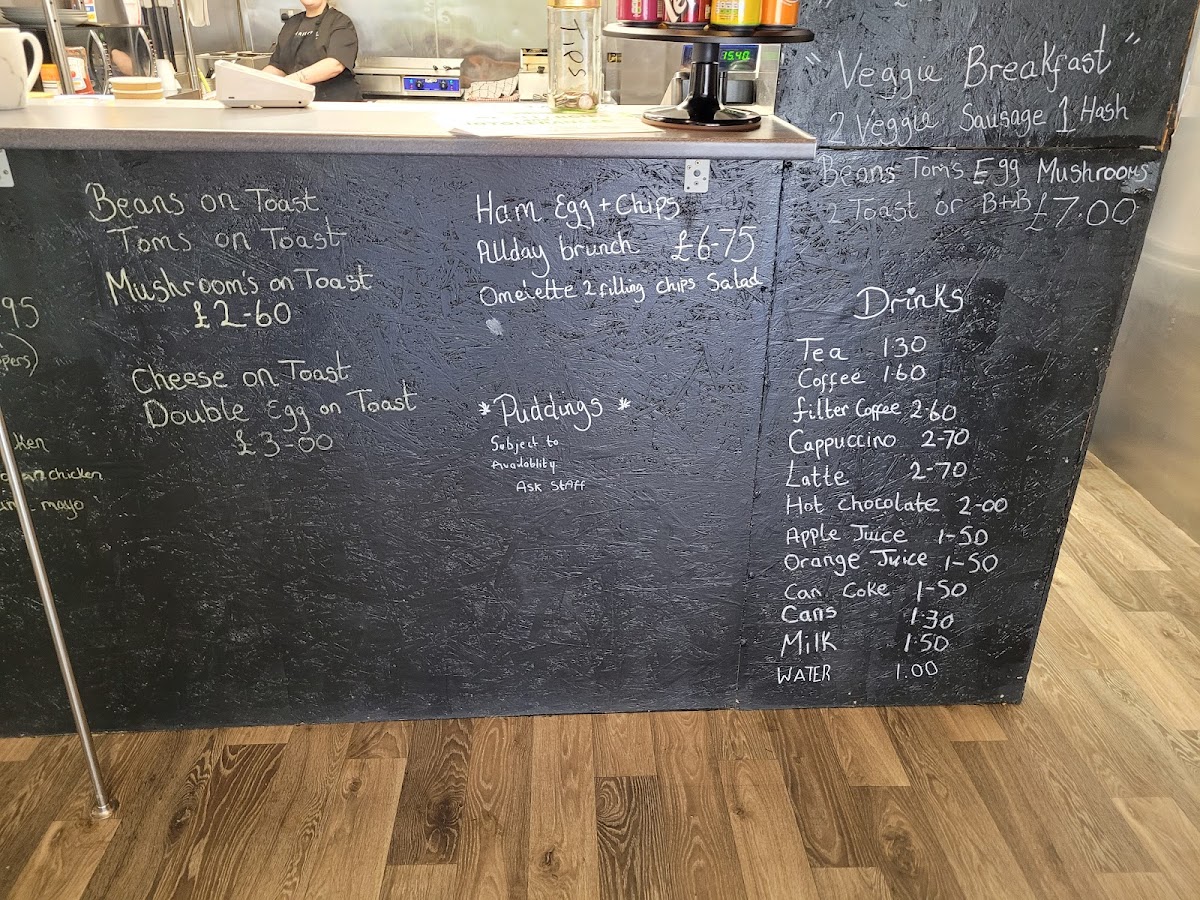 TIPS
15:40
"Veggie Breakfast"
2 Veggie Sausage 1 Hash
Beans Tom's Egg Mushrooms
2 Toast or B+B £7.00
95
Beans on Toast
Toms on Toast
Mushroom's on Toast
£2-60
Cheese on Toast
Double Egg on Toast
£3-00
chicken
mayo
Ham Egg + Chips
Allday brunch £6-75
Omelette 2 filling chips Salad
*Puddings*
Subject to
Availablity
ASK Staff
Drinks
Tea 130
Coffee 160
filter Coffee 2-60
Cappuccino 2-70
Latte 2-70
Hot chocolate 2-00
Apple Juice 1-50
Orange Juice 1-50
Can Coke 1-50
Cans 1.30
Milk 1.50
WATER 1.00